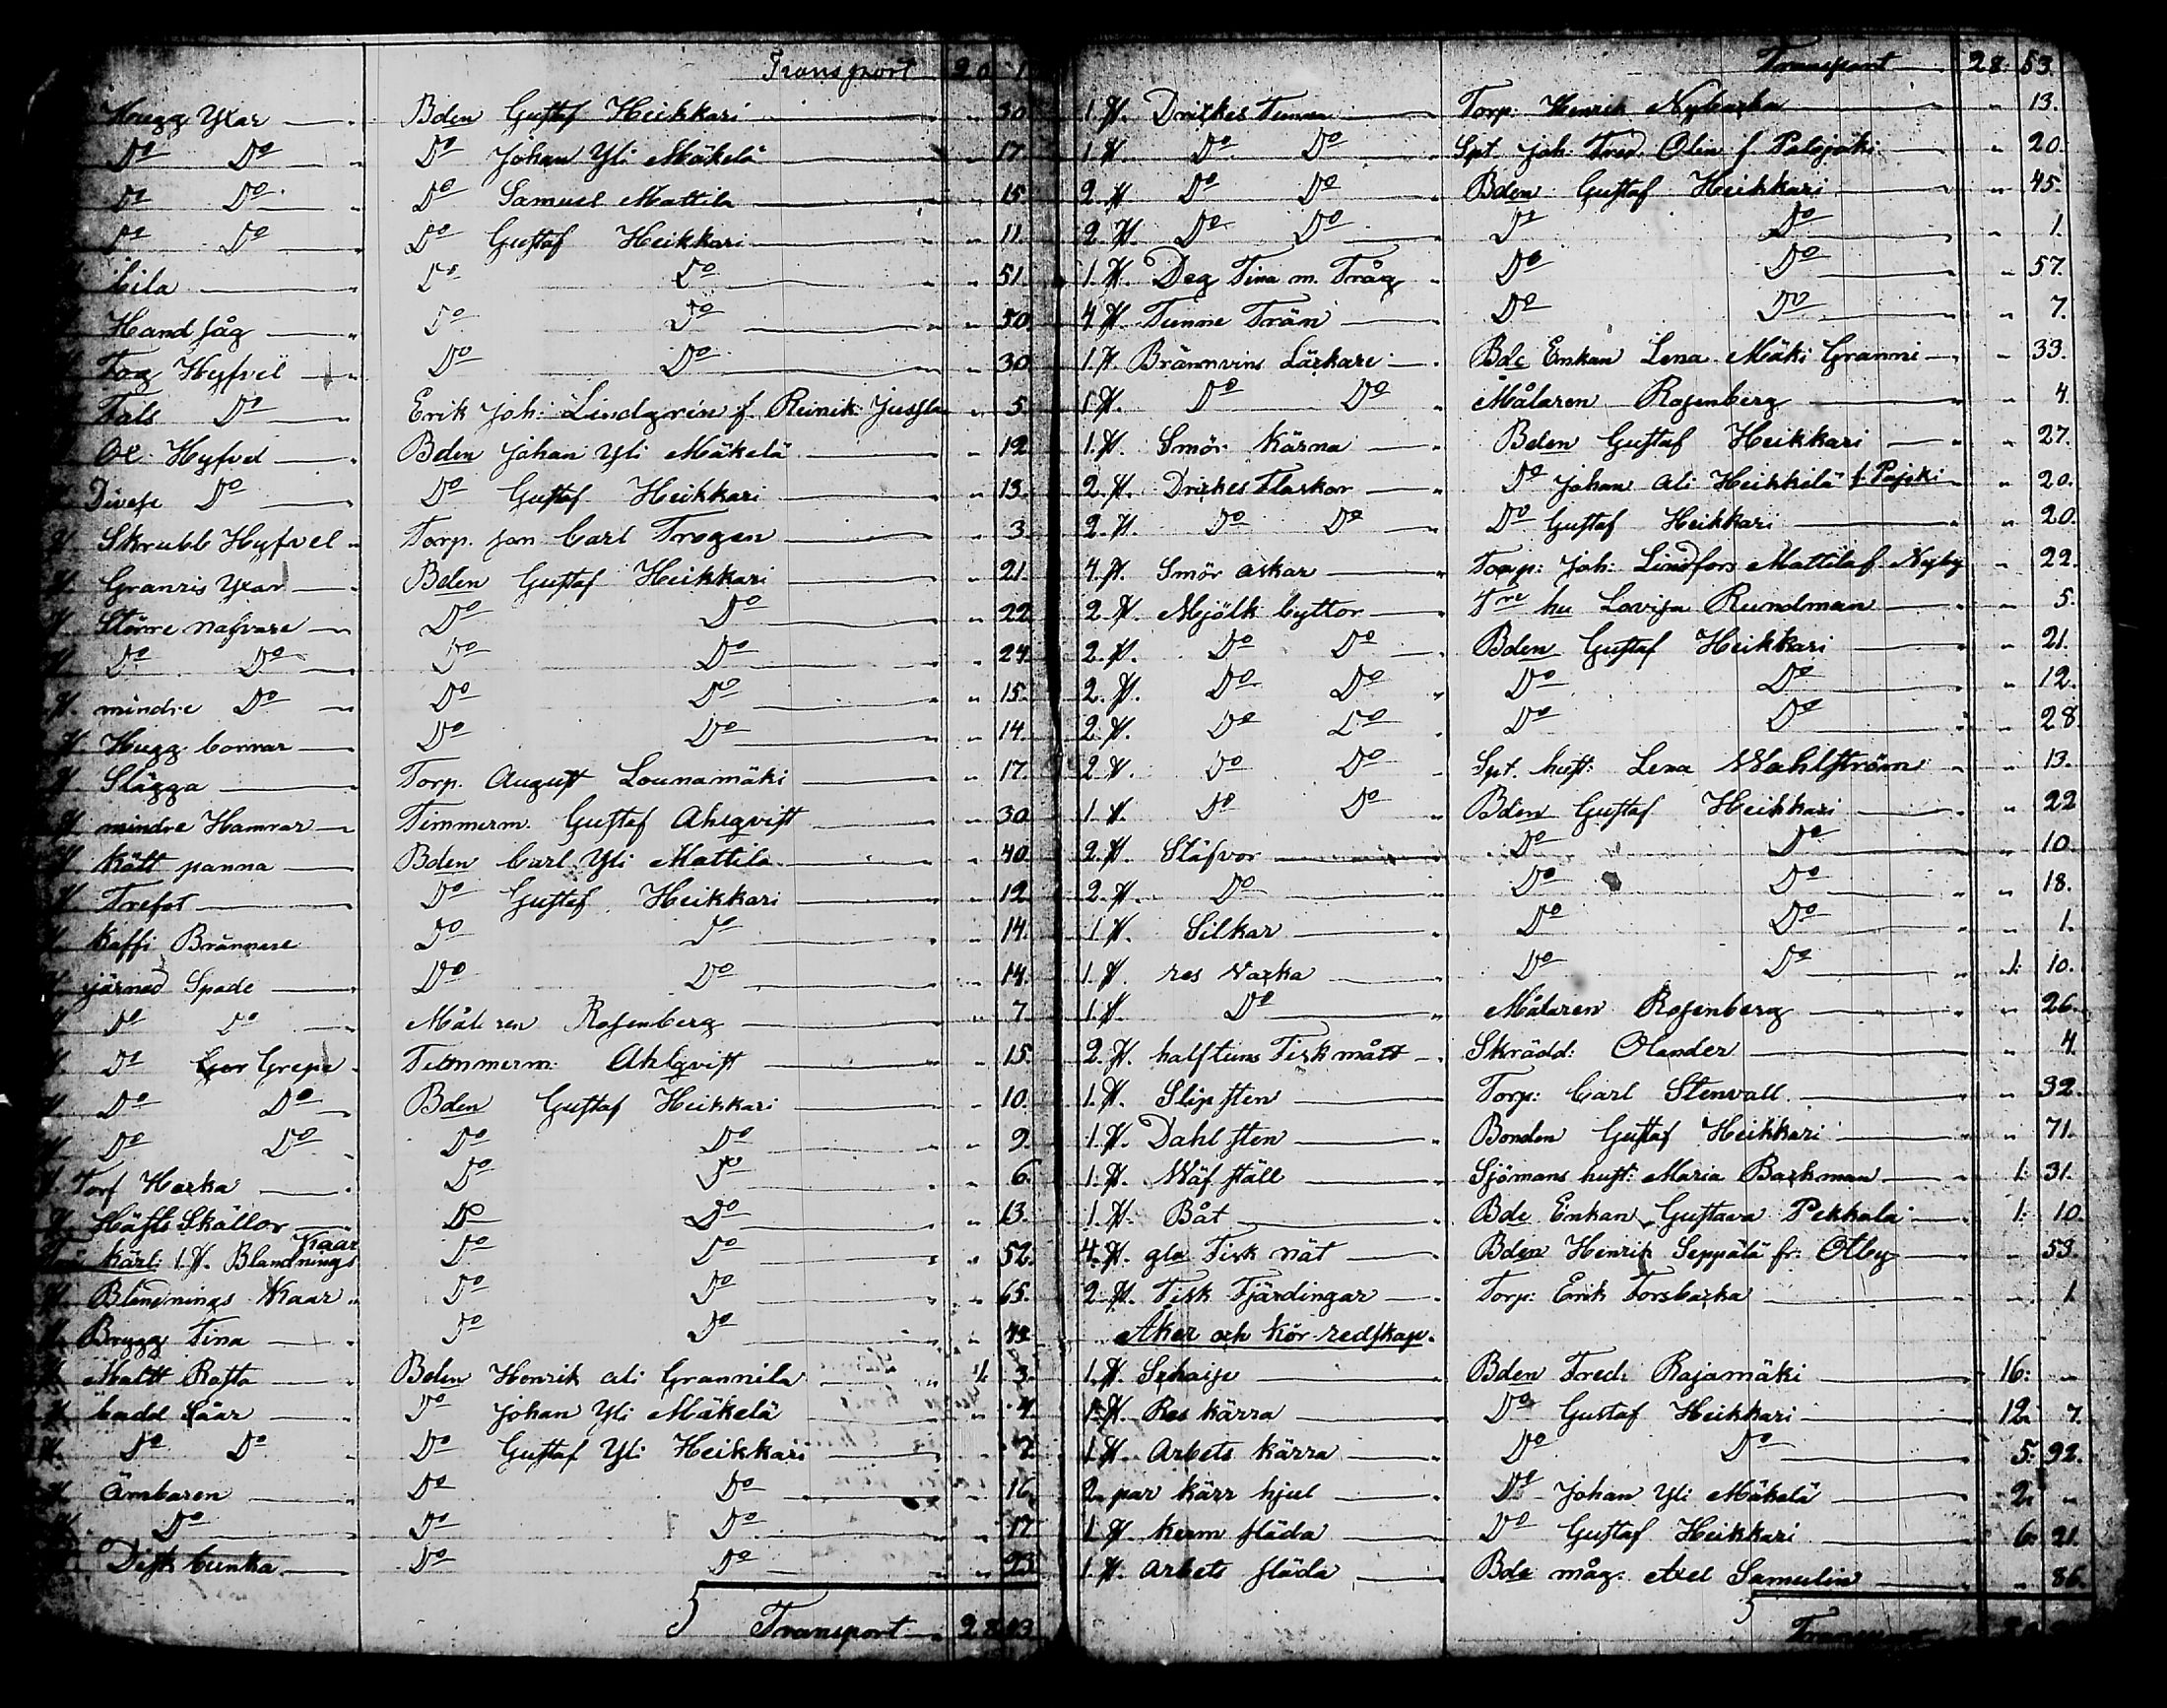 Transport 20 1
Hugg Yxar Bden Gustaf Heikkari " 30
Do Do Do Johan Yli Mäkelä " 17
Do Do Do Samuel Mattila " 15
Do Do Do Gustaf Heikkari " 11
Bila Do Do " 51
Hand såg Do Do " 50
Fog Hyfvel Do Do " 30
Fals Do Erik Joh: Lindgrén f. Reinik: Jussila " 5
Ol Hyfvel Bden Johan Yli Mäkelä " 12
Diverse Do Do Gustaf Heikkari " 13
Skrubb Hyfvel Torp. Jan Carl Trogen " 3
Granris Yxar Bden Gustaf Heikkari " 21
Större nafvare Do Do " 22
Do Do Do Do " 24
mindre Do Do Do " 15
Hugg borrar Do Do " 14
Slägga Torp. August Lounamäki " 17
mindre Hamrar Timmerm. Gustaf Ahlqvist " 30
Kött panna Bden Carl Yli Mattila " 40
Trefot Do Gustaf Heikkari " 12
Kaffi Brännare Do Do " 14
järned Spade Do Do " 14
Do Do Målaren Rosenberg " 7
Do Gör Grepe Timmerm: Ahlqvist " 15
Do Do Bden Gustaf Heikkari " 10
Do Do Do Do " 9
Torf Harka Do Do " 6
Häfte Skållor Do Do " 13
Trä kärl: 1. St. Blandnings Kaar Do Do " 52
Blandnings Kaar Do Do " 65
Brygg Tina Do Do "
Maltt Rosta Bden Henrik ali Grannila 1 3
badd Såar Do Johan Yli Mäkelä " 4
Do Do Do Gustaf Yli Heikkari " 7
Ämbaren Do Do " 16
Do Do Do " 17
Disk bunka Do Do " 23
Transport 28
Transport 28. 53
1. St. Drickes Tunna Torp: Henrik Nybacka " 13.
1. St. Do Do Spt. Joh: Fred. Olin f. Palojoki " 20.
2. St. Do Do Bden Gustaf Heikkari " 45.
2. St. Do Do Do Do " 1.
1. St. Deg Tina m. Tråg Do Do " 57.
4. St. Tunne Trän Do Do " 7.
1. St. Brännvins Läckare Bde Enkan Lena Mäki Granni " 33.
1. St. Do Do Målaren Rosenberg " 4.
1. St. Smör Kärna Bden Gustaf Heikkari " 27.
2. St. Drickes Flaskor Do Johan ali Heikkilä f. " 20.
2. St. Do Do Do Gustaf Heikkari " 20.
4. St. Smör askar Torp: Joh: Lindfors Mattila f. Nyby " 22.
2. St. Mjölk byttor Tre hu Lovisa Rundman " 5.
2. St. Do Do Bden Gustaf Heikkari " 21.
2. St. Do Do Do Do " 12.
2. St. Do Do Do Do " 28.
2. St. Do Do Spt. hust: Lena Wahlström " 13.
1. St. Do Do Bden Gustaf Heikkari " 22
2. St. Stäfvor Do Do " 10.
2. St. Do Do Do " 18.
1. St. Silkar Do Do " 1.
1. St. res Vacka Do Do 1: 10.
1. St. Do Målaren Rosenberg " 26.
2. St. halftuns Fisk mått Skrädd: Olander " 4.
1. St. Slipsten Torp: Carl Stenvall " 32.
1. St. Dahlsten Bonden Gustaf Heikkari " 71.
1. St. Wäf ställ Sjömans hust: Maria Backman 1: 31.
1. St. Båt Bde Enkan Gustava Pekkala 1: 10.
4. St. gla Fisk nät Bden Henrik Seppälä fr: Otby " 53.
2. St. Fisk Fjärdingar Torp: Erik Forsbacka " 1
Åker och Kör redskap.
1. St. Schaise Bden Fred: Rajamäki 16: "
1. St. Res kärra Do Gustaf Heikkari 12. 7.
1. St. Arbets kärra Do Do 5: 92.
2. par kärr hjul Do Johan Yli Mäkelä 2. "
1. St. Kerm släda Do Gustaf Heikkari 6: 21.
1. St. Arbets släda Bde måg: Axel Samulin " 86.
Transport